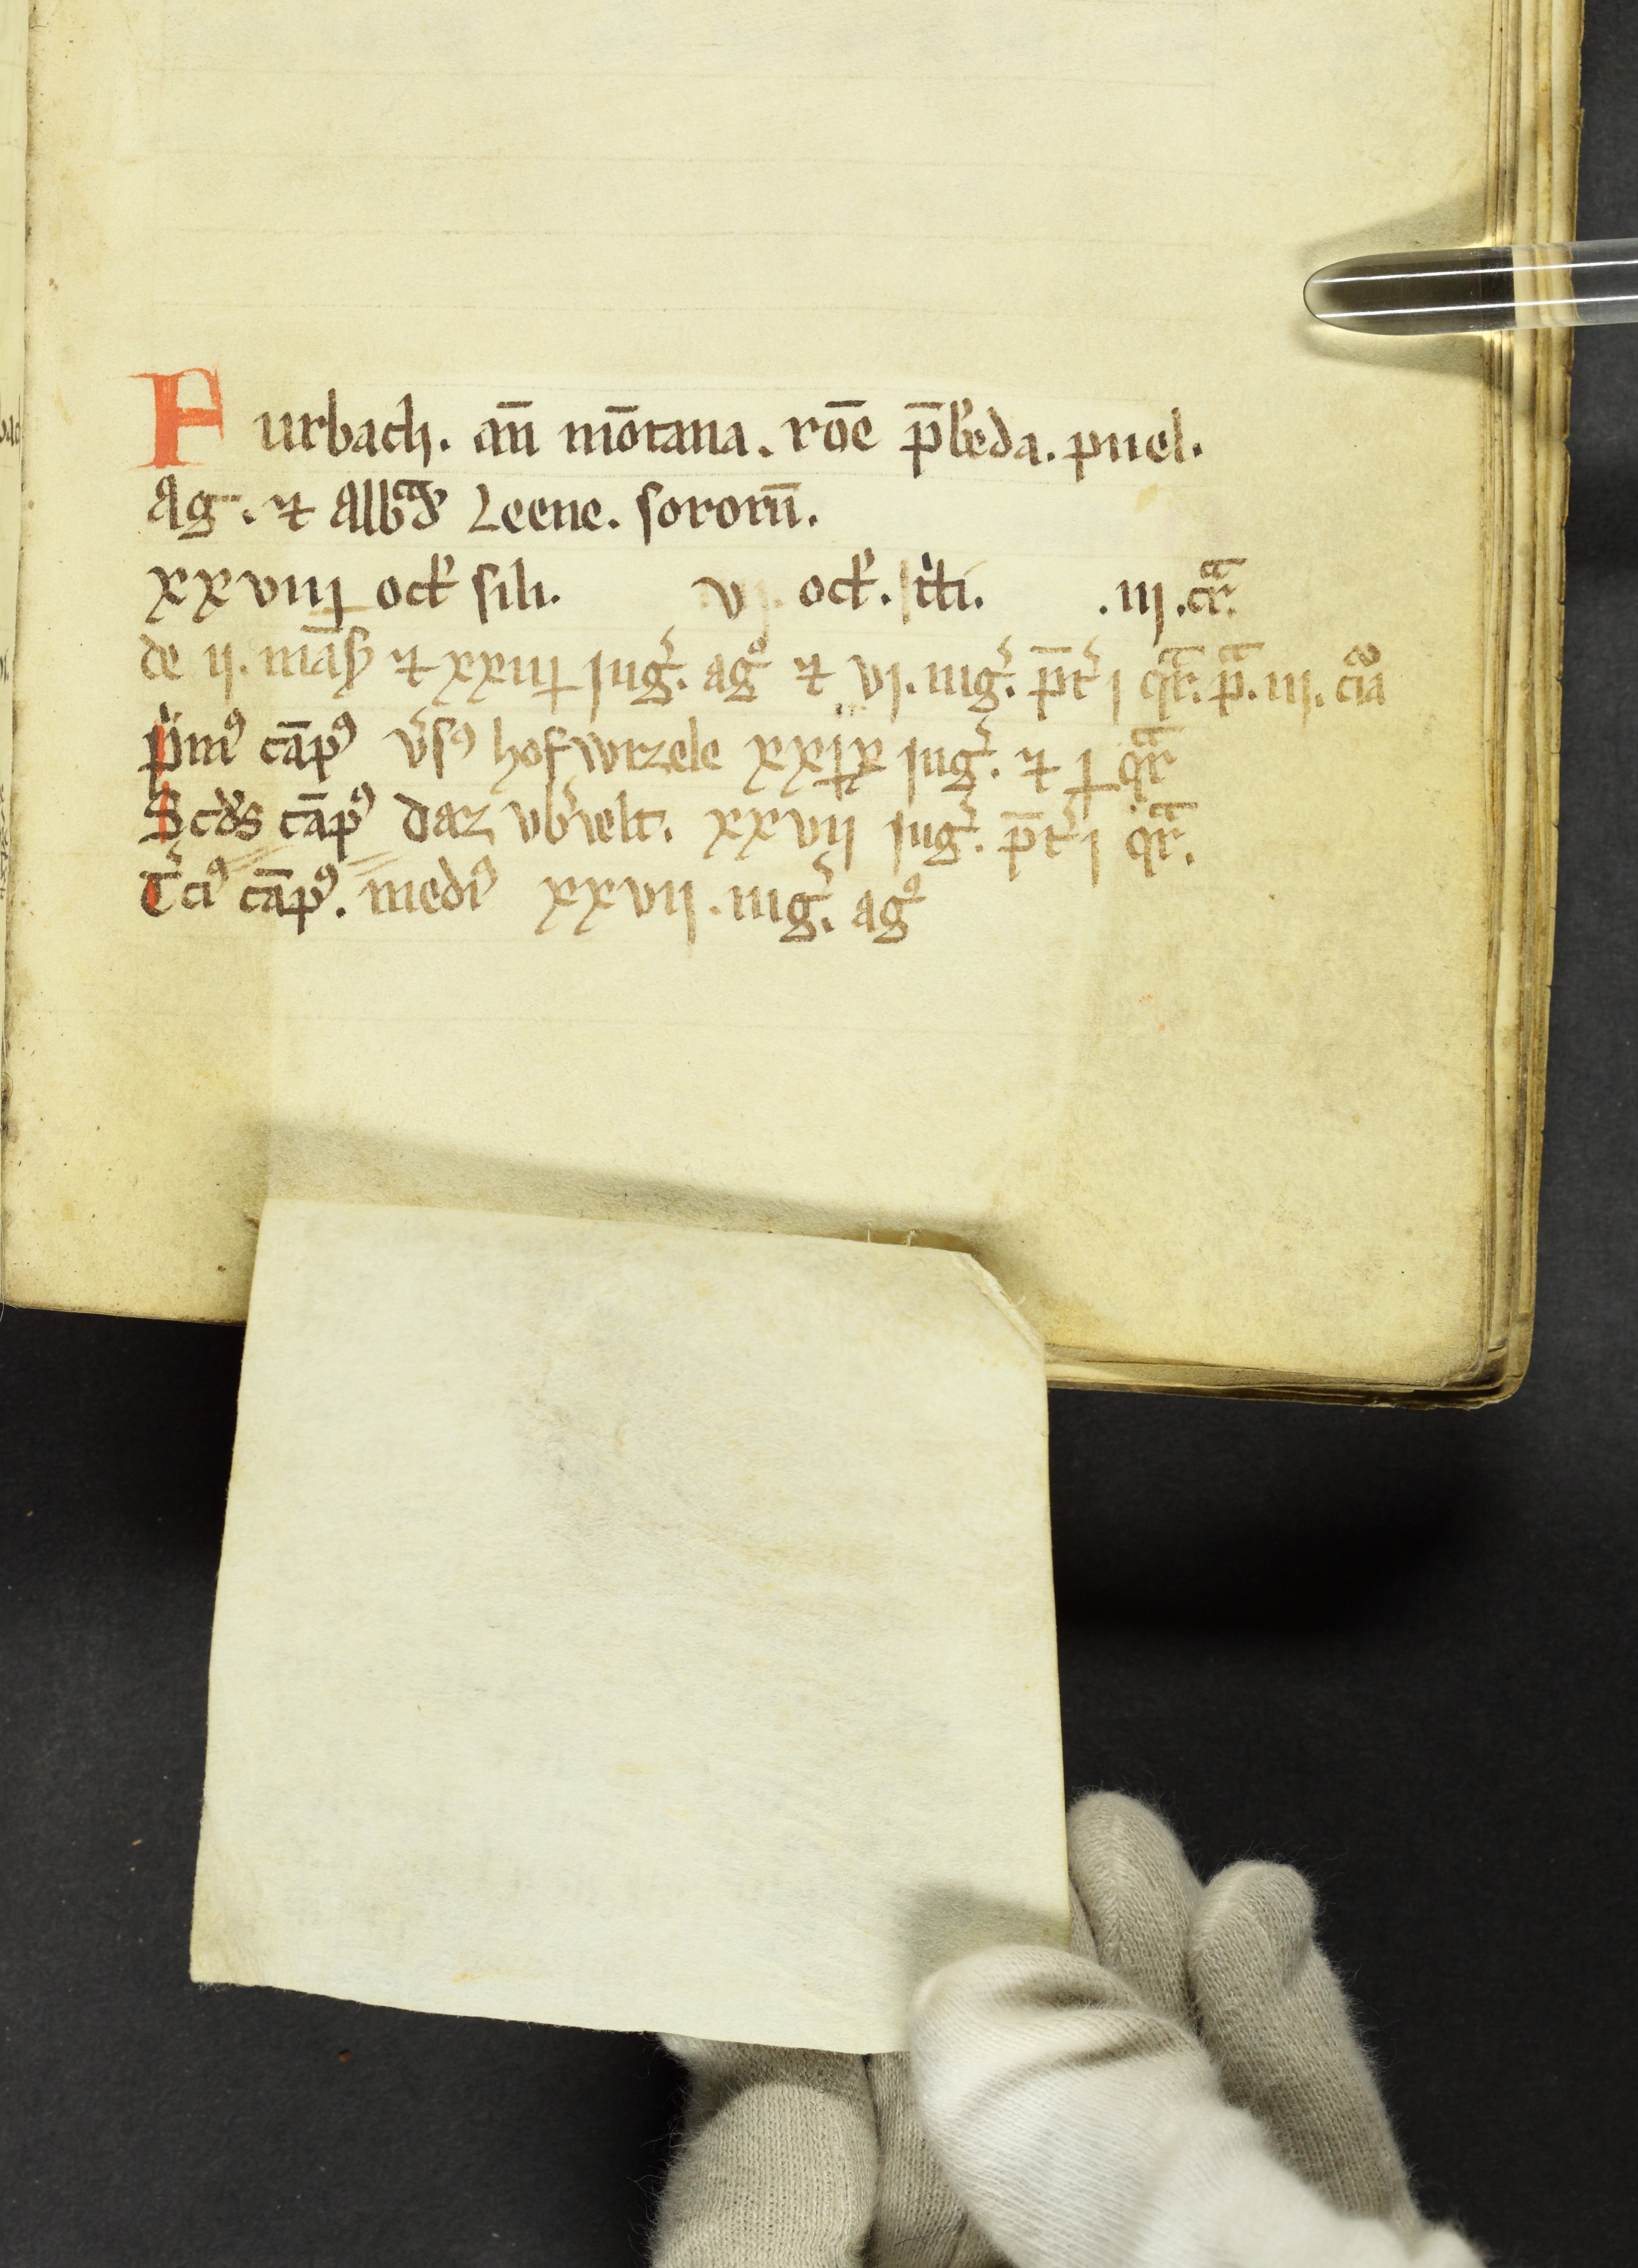 Furbach. an̄ mōtana. rōe p̄bēda. puel.
Ag. ⁊ Albͣd' Leene. sororū.
xxviiij ock' sili. vj. ock'. t'ti. .iij.cͣr.
de ij. mās' ⁊ xxiiij jug'. ag° ⁊ vj. iug'. p̄t' j qͣr. pͣ. iij. cia
p'mꝰ cāpꝰ v'sꝰ hofwrzele xxjx jug'. ⁊ j qͣr
Scd's cāpꝰ daz vb'velt. xxvij jug'. p̄t' j qͣr.
T'ciꝰ cāpꝰ. mediꝰ xxvij. iug'. ag°